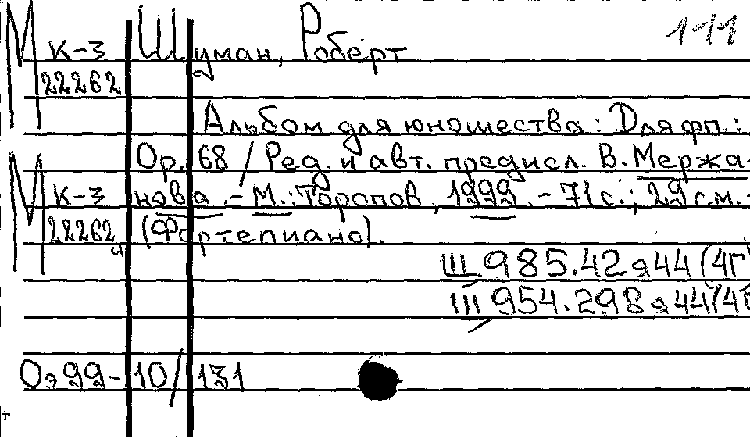 М К-3 Шуман, Роберт 1-11
22262
Альбом для юношества: Для фп.:
Ор. 68 / Ред. и авт. предисл. В. Мержа-
М К-3 нова. - М.: Торопов, 1999. - 71 с.; 29 см. -
22262 (Фортепиано).
Щ 985.42я44(4Г
Щ 954.298я44(4Г
Оэ 99-10/131